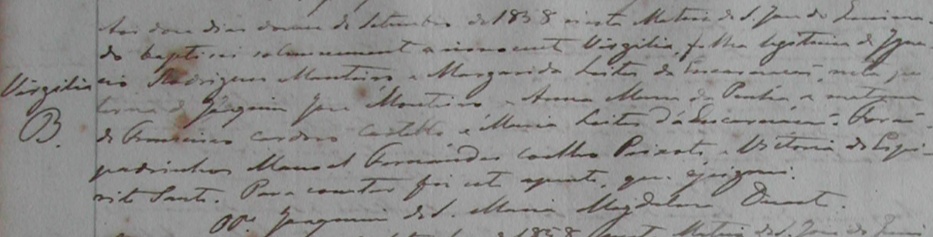 Aos doze dias do mez de Setembro de 1858 nesta Matriz de S. João do
do baptisei solemnemente a innocente Virgilia, filha legitima de Igna-
Virgilia cio Rodrigues Monteiro e Margarida Leite da Encarnação, neta pa-
B. terna de Joaquim José Monteiro e Anna Maria da Penha, e materna
de Francisco Cardoso Castello e Maria Leite da Encarnação. Forão
padrinhos Manoel Fernandes Coelho Peixoto, e Victoria do Espi-
rito Santo. Para constar fiz este que assignei.
Joaquim de S. Maria Magdalena Duarte.
de 1858 nesta Matriz de S. João do